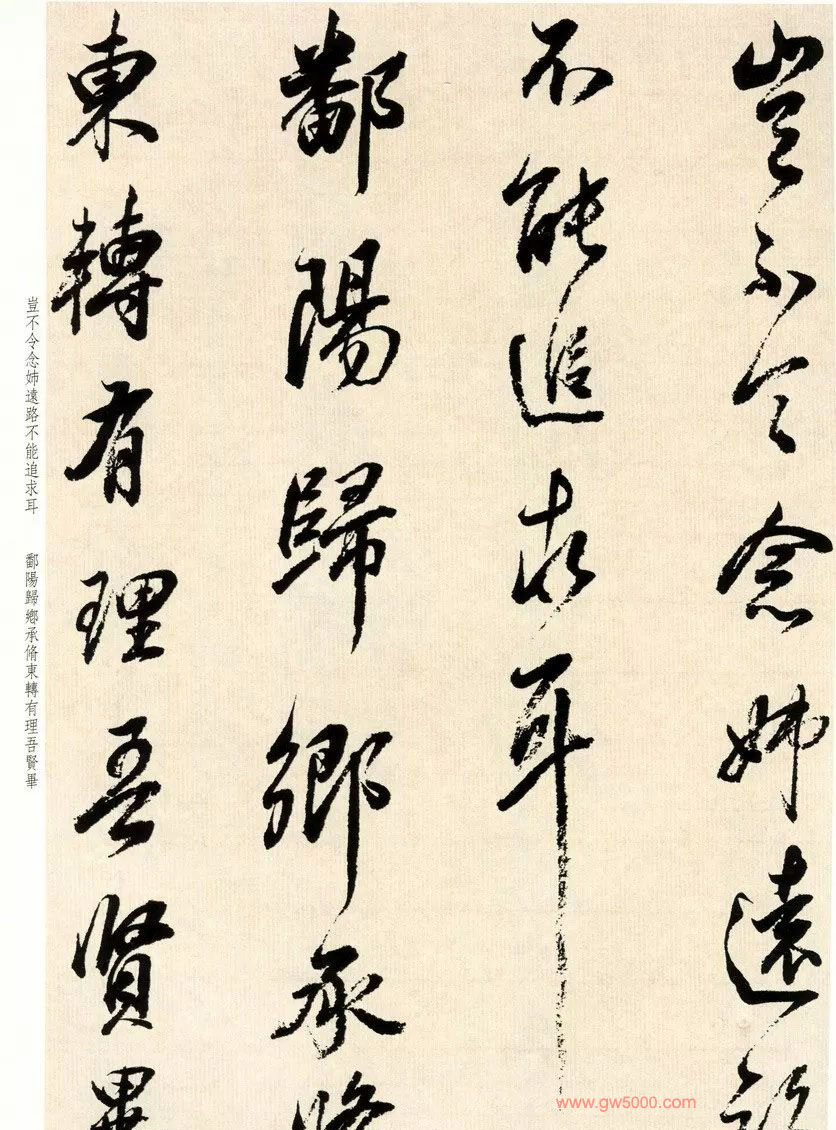 豈不令念姊遠路
不能追求耳
鄱陽歸鄉承脩
東轉有理吾賢畢
豈不令念姊遠路不能追求耳　鄱陽歸鄉承脩東轉有理吾賢畢
www.gw5000.com